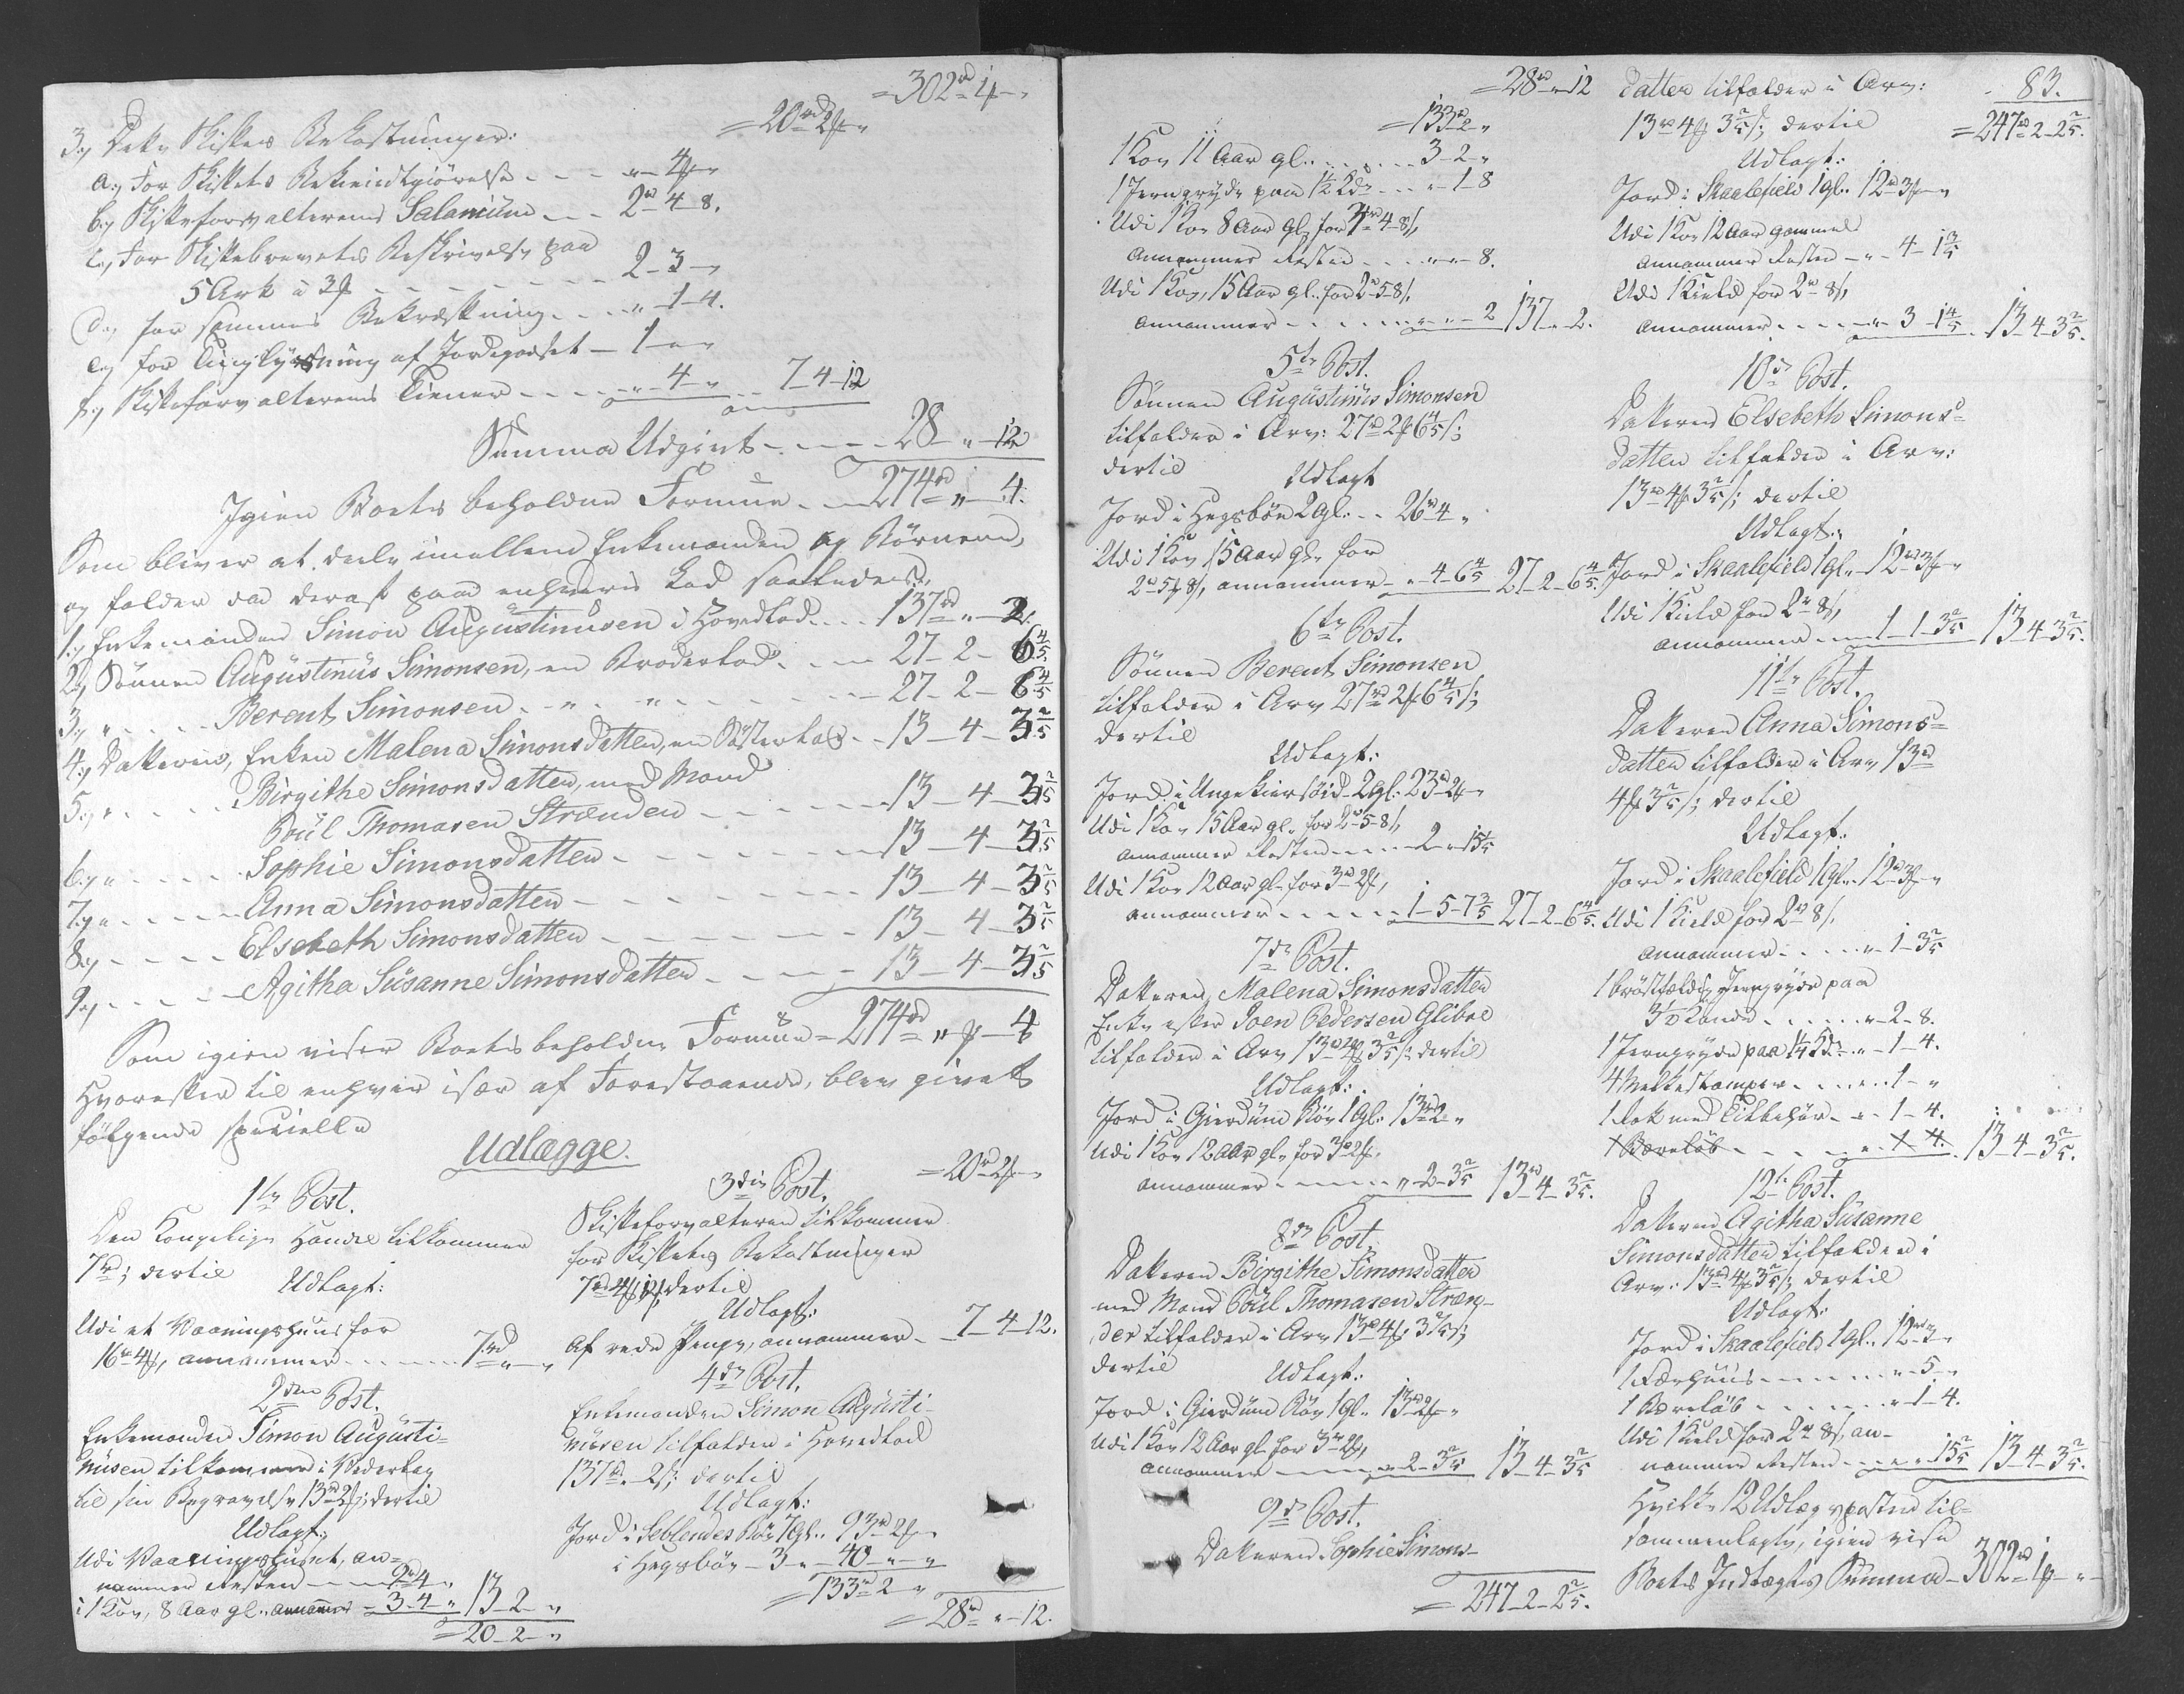 = 302 rd 1 ʄ „
= 20 rd 2 ʄ „
3.) Dette Skiftes Bekostninger:
a.) For Skiftets Bekiendtgiörelse - - - „ - 4 ʄ „
b.) Skifteforvalterens Salarium - - 2 rd - 4 - 8.
c.) For Skiftebrevets Beskrivelse paa
5 Ark à 3 ʄ - - - - - - 2 - 3 - „
d.) for sammes Bekræftning - - - „ - 1 - 4.
e.) for Tinglysning af Jordegodset - 1 - „ - „
f.) Skifteforvalterens Tiener - - - - „ - 4 - „ - - 7 - 4 - 12
Summa Udgivt - - - - 28 - „ - 12
Igien Boets beholdne Formue - - 274 rd „ - 4.
Som bliver at deele imellem Enkemanden og Börnene,
og falder da deraf paa enhvers Lod saaledes:
1.) Enkemanden Simon Augustinusen i Hovedlod - - - 137 rd „ - 2.
2.) Sönnen Augustinus Simonsen, en Broderlod - - - 27 - 2 - 6 4/5
3.) „ - - - - Berent Simonsen - „ - „ - - - - 27 - 2 - 6 4/5
4.) Datteren, Enken Malena Simonsdatter, en Söster lod - - 13 - 4 - 3 2/5
5.) „ - - - - Birgithe Simonsdatter, med Mand
Poül Thomasen Strænden - - - - 13 - 4 - 3 2/5
6.) „ - - - - Sophie Simonsdatter - - - - - 13 - 4 - 3 2/5
7.) „ - - - - Anna Simonsdatter - - - - - - 13 - 4 - 3 2/5
8.) - - - - Elsebeth Simonsdatter - - - - - 13 - 4 - 3 2/5
9.) - - - - Agitha Süsanne Simonsdatter - - - - 13 - 4 - 3 2/5
Som igien viser Boets beholdne Formüe = 274 rd „ ʄ - 4
Hvorefter til enhver især af Forestaaende, blev givet
fölgende specielle
Udlægge.
1te Post.
Den Kongelige Handel tilkommer
7 rd; dertil
Udlagt:
Udi et Vaaningshuus for
16 rd 4 ʄ, annammer - - - - - 7 rd „ - „
2den Post.
Enkemanden Simon Augusti-
nusen tilkommer i Vederlag
til sin Begravelse 13 rd 2 ʄ; dertil
Udlagt:
Udi Vaaningshuset, an-
nammer Resten - - - 9 rd 4 „
i 1 Koe, 8 Aar gl. annammer - 3 - 4 - „ 13 - 2 - „
= 20 - 2 - „
= 20 rd 2 ʄ „
3die Post.
Skifteforvalteren tilkommer
for Skiftets Bekostninger
7 rd 4 ʄ 12 ; dertil
Udlagt:
Af rede Penge, annammer - - 7 - 4 - 12.
4de Post.
Enkemanden Simon Augusti-
nusen tilfalder i Hovedlod
137 rd „ 2 ; dertil
Udlagt:
Jord i Seblendes Böe 7 gl. 93 rd 2 ʄ „
i Hegsböe - 3 - „ - 40 - „ - „
= 133 rd 2 - „
= 28 rd „ - 12.
= 28 rd „ - 12
= 133 rd 2 „
1 Koe 11 Aar gl. - - - - - - 3 - 2 - „
1 Jerngryde paa 1 1/2 Kde - - - „ - 1 - 8
Udi 1 Koe 8 Aar gl. for 3 rd 4 - 8 ,
annammer Resten - - - - „ - „ - 8.
Udi 1 Koe, 15 Aar gl. for 2 - 5 - 8 ,
annammer - - - - - - „ - „ - 2 137 - „ - 2.
5te Post.
Sönnen Augustinus Simonsen
tilfalder i Arv: 27 rd 2 ʄ 6 4/5 ;
dertil
Udlagt
Jord i Hegsböe 2 gl. - - 26 rd 4 „
Udi 1 Koe 15 Aar gl. for
2 rd 5 ʄ 8 , annammer - „ - 4 - 6 4/5 27 - 2 - 6 4/5.
6te Post.
Sönnen Berent Simonsen
tilfalder i Arv 27 rd 2 ʄ 6 4/5 ;
dertil
Udlagt:
Jord i - 2 gl. 23 rd 2 ʄ „
Udi 1 Koe 15 Aar gl. for 2 rd 5 - 8 ,
annammer Resten - - - - 2 - „ - 15 1/5
Udi 1 Koe 12 Aar gl. for 3 rd 2 ʄ,
annammer - - - - - 1 - 5 - 7 3/5 27 - 2 - 6 4/5.
7de Post.
Datteren Malena Simonsdatter
Enke efter Joen Pedersen Glibre
tilfalder i Arv 13 rd 4 ʄ 3 2/5 ; dertil
Udlagt:
Jord i Gierdüm Böe 1 gl. 13 rd 2 „
Udi 1 Koe 12 Aar gl. for 3 rd 2 ʄ,
annammer - - - - - „ - 2 - 3 2/5 13 rd 4 - 3 2/5.
8de Post.
Datteren Birgithe Simonsdatter
med Mand Poül Thomasen Stræn-
der tilfalder i Arv 13 rd 4 ʄ 3 2/5 ;
dertil
Udlagt:
Jord i Gierdüm Böe 1 gl. 13 rd 2 ʄ „
Udi 1 Koe 12 Aar gl. for 3 rd 2 ʄ,
annammer - - - - - „ - 2 - 3 2/5 13 - 4 - 3 2/5
9de Post.
Datteren Sophie Simons-
= 247 - 2 - 2 2/5.
83.
datter tilfalder i Arv:
13 rd 4 ʄ 3 2/5 ; dertil = 247 rd 2 - 2 2/5.
Udlagt:
Jord i Skaalefield 1 gl. 12 rd 3 ʄ „
Udi 1 Koe 12 Aar gammel
annammer Resten - „ - 4 - 1 3/5
Udi 1 Kield for 2 rd 8 ,
annammer - - - - - „ - 3 - 1 4/5 13 - 4 - 3 2/5.
10de Post.
Datteren Elsebeth Simons-
datter tilfalder i Arv:
13 rd 4 ʄ 3 2/5 ; dertil
Udlagt:
Jord i Skaalefield 1 gl. - 12 rd 3 ʄ „
Udi 1 Kield for 2 rd 8 ,
annammer - - - 1 - 1 - 3 2/5 13 - 4 - 3 2/5.
11te Post.
Datteren Anna Simons-
datter tilfalder i Arv 13 rd
4 ʄ 3 2/5 ; dertil
Udlagt:
Jord i Skaalefield 1 gl. 12 rd 3 ʄ „
Udi 1 Kield for 2 rd 8 ,
annammer - - - - „ - 1 - 3 2/5
1 bröstfældig Jerngryde paa
Tønde - - - - - „ - 2 - 8.
1 Jerngryde paa 1 1/4 Kde - „ - 1 - 4.
4 Melkestamper - - - - „ - 1 - „
1 Rok med Tilbehör - „ - 1 - 4.
1 Bæreløb - - - - - „ - 1 - 4. 13 - 4 - 3 2/5.
12te Post.
Datteren Agitha Süsanne
Simonsdatter tilfalder i
Arv: 13 rd 4 ʄ 3 2/5 ; dertil
Udlagt:
Jord i Skaalefield 1 gl. 12 rd 3 „
1 Færhuus - - - - - „ - 5 - „
1 Bæreløb - - - - - „ - 1 - 4.
Udi 1 Kield for 2 rd 8 , an-
nammer Resten - - - „ - „ - 15 2/5 13 - 4 - 3 2/5.
Hvilke 12 Udlægsposter til-
sammenlagte, igien vise
Boets Indtægts Summa - 302 rd 1 ʄ „